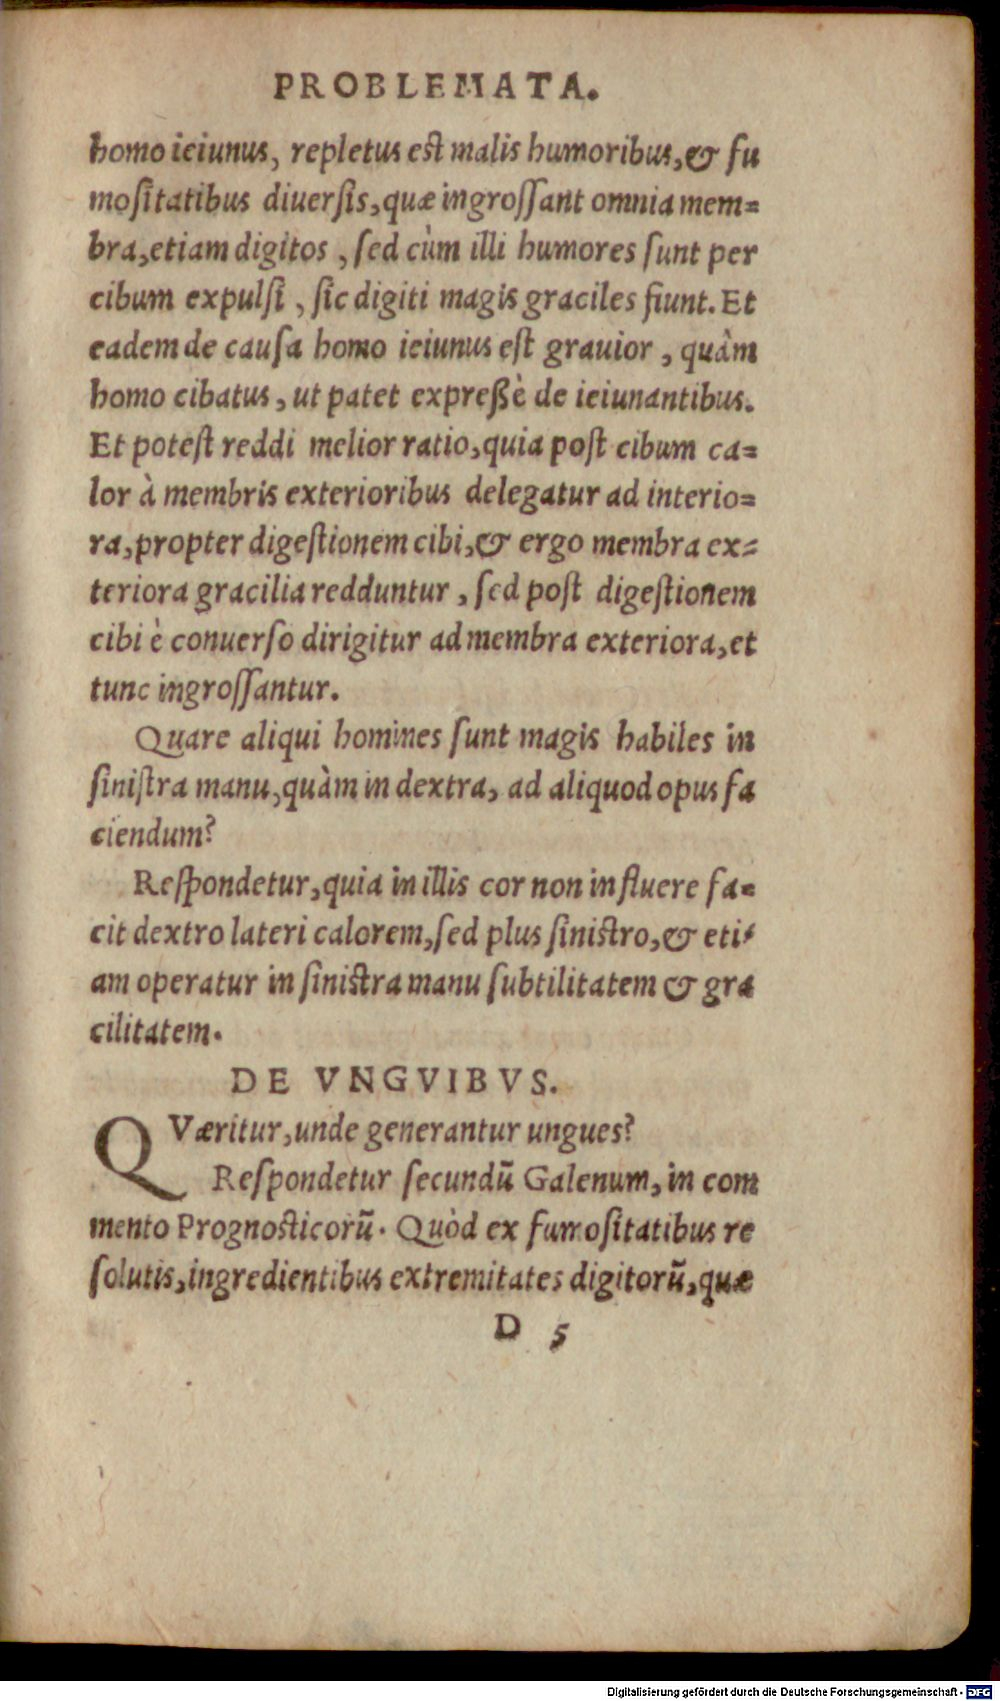 PROBLEMATA.
homo ieiunus, repletus est malis humoribus,& fu
mositatibus diuersis,quæ ingrossant omnia mem=
bra,etiam digitos , sed cùm illi humores sunt per
cibum expulsi , sic digiti magis graciles fiunt. Et
eadem de causa homo ieiunus est grauior , quàm
homo cibatus, ut patet expreßè de ieiunantibus.
Et potest reddi melior ratio,quia post cibum ca=
lor à membris exterioribus delegatur ad interio=
ra,propter digestionem cibi,& ergo membra ex=
teriora gracilia redduntur , sed post digestionem
cibi è conuerso dirigitur ad membra exteriora,et
tunc ingrossantur.
Quare aliqui homines sunt magis habiles in
sinistra manu,quàm in dextra, ad aliquod opus fa
ciendum?
Respondetur,quia in illis cor non influere fa=
cit dextro lateri calorem,sed plus sinistro,& eti=
am operatur in sinistra manu subtilitatem & gra
cilitatem.
DE VNGVIBVS.
QVæritur,unde generantur ungues?
Respondetur secundũ Galenum, in com
mento Prognosticorũ. Quòd ex fumositatibus re
solutis,ingredientibus extremitates digitorũ,quæ
D 5
Digitalisierung gefördert durch die Deutsche Forschungsgemeinschaft - DFG